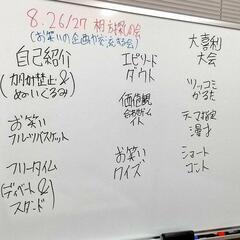 8.26/27 相方探しの会
(お笑いの企画や交流する会)
自己紹介
(カタカナ禁止&
ぬいぐるみ)
お笑い
フルーツバスケット
フリータイム
(ディベート&
スタンド)
エピソード
ダウト
価値観
イト
お笑い
クイズ
大喜利
大会
ツッコミ
かるた
テーマ指定
漫才
ショート
コント